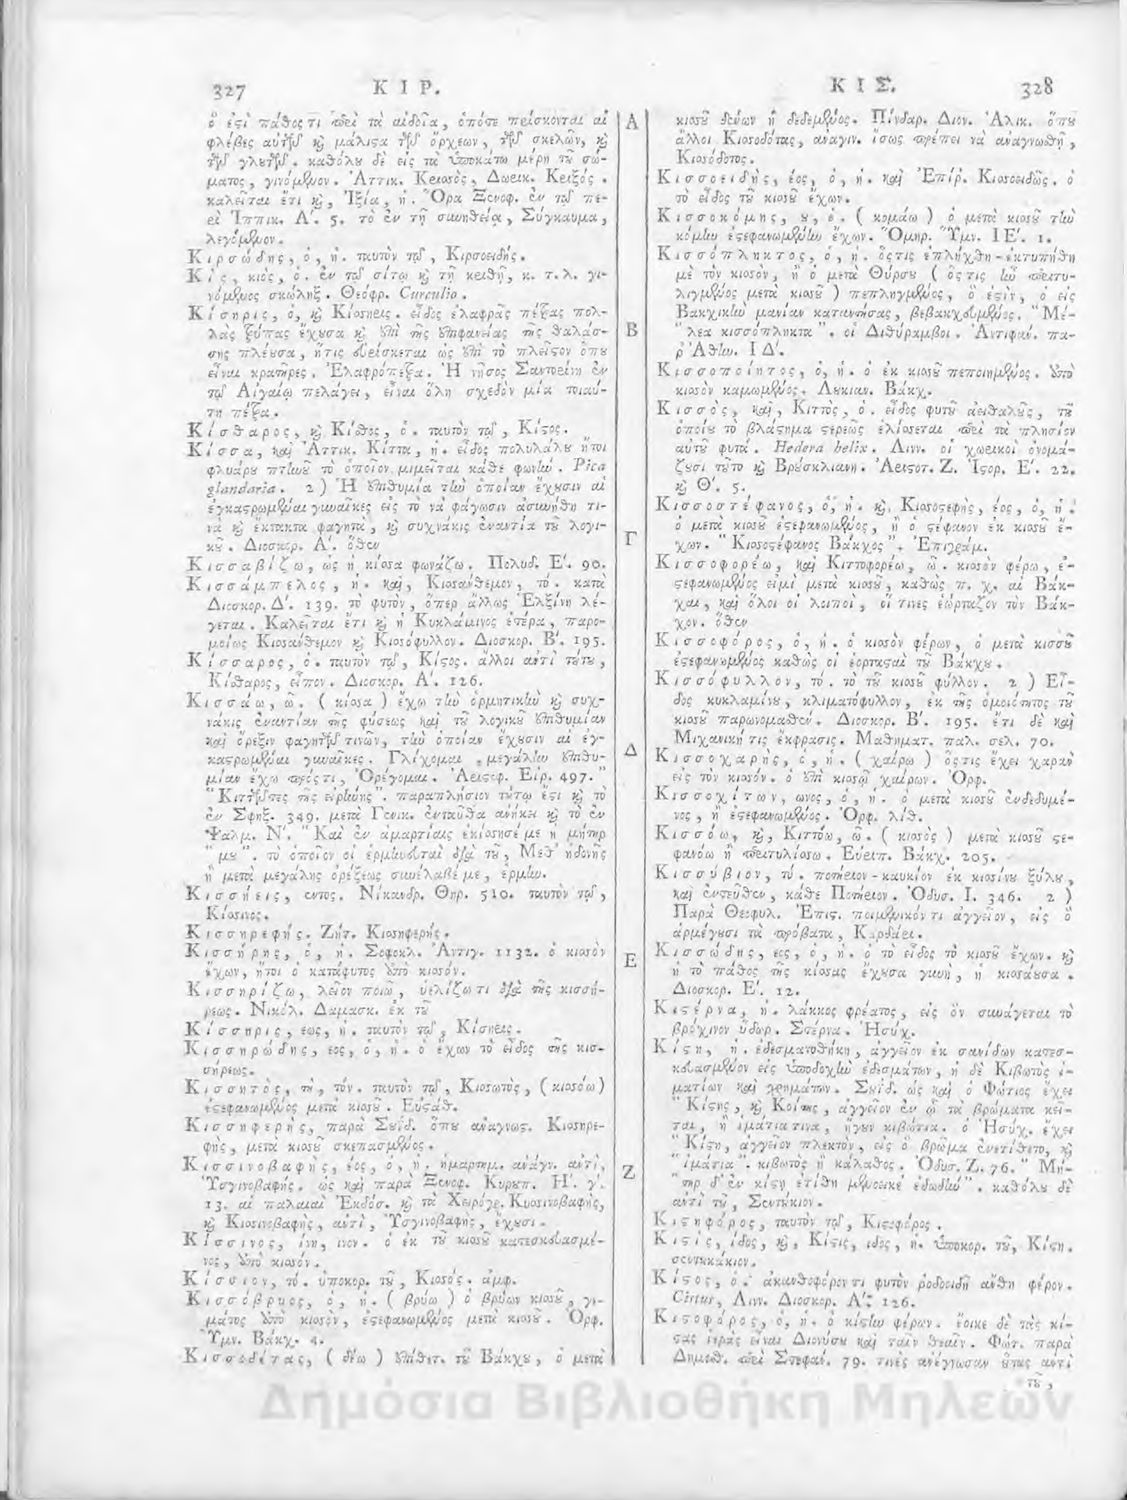 327 ΚΙΡ.
ὅ ἐστὶ πάθος τι περὶ τὰ αἰδοῖα, ὁπότε πρίσκονται αἱ
φλέβες αὐτῶν καὶ μάλιστα τῶν ὄρχεων, τῶν σκελῶν, καὶ
τῶν γλουτῶν. καθόλου δὲ εἰς τὰ ὑποκάτω μέρη τοῦ σώ-
ματος, γινόμενον. Ἀττικ. Κριασὸς, Δωρικ. Κριξός.
καλεῖται ἔτι καὶ, Ἰξία, ἡ. Ὅρα Ξενοφ. ἐν τῷ πε-
ρὶ Ἱππικ. Α΄. 5. τὸ ἐν τῇ συνηθείᾳ, Σύγκαυμα,
λεγόμενον.
Κιρσώδης, ὁ, ἡ. ταυτὸν τῷ, Κιρσοειδής.
Κίς, κιὸς, ὁ. ἐν τῷ σίτῳ καὶ τῇ κριθῇ, κ. τ. λ. γι-
νόμενος σκώληξ. Θεόφρ. Curculio.
Κίσηρις, ὁ, καὶ Κίσσηρις. εἶδος ἐλαφρᾶς πέτρας πολ-
λὰς τρύπας ἔχουσα καὶ ἐπὶ τῆς ἐπιφανείας τῆς θαλάσ-
σης πλέουσα, ἥτις εὑρίσκεται ὡς ἐπὶ τὸ πλεῖστον ὅπου
εἶναι κρατῆρες. Ἐλαφρόπετρα. Ἡ νῆσος Σαντορίνη ἐν
τῷ Αἰγαίῳ πελάγει, εἶναι ὅλη σχεδὸν μία τοιαύ-
τη πέτρα.
Κίσθαρος, καὶ Κίσθος, ὁ. ταυτὸν τῷ, Κίστος.
Κίσσα, καὶ Ἀττικ. Κίττα, ἡ. εἶδος πολυλάλου ἤτοι
φλυάρου πτηνοῦ τὸ ὁποῖον μιμεῖται κάθε φωνήν. Pica
glandaria. 2) Ἡ ἐπιθυμία τὴν ὁποίαν ἔχουσιν αἱ
ἐγκαστρωμέναι γυναῖκες εἰς τὸ νὰ φάγωσιν ἀσυνήθη τι-
νὰ καὶ ἔκτακτα φαγητὰ, καὶ συχνάκις ἐναντία τοῦ λογι-
κοῦ. Διοσκορ. Α΄. ὅθεν
Κισσαβίζω, ὡς ἡ κίσσα φωνάζω. Πολυδ. Ε΄. 90.
Κισσάμπελος, ἡ. καὶ, Κισσάνθεμον, τό. κατὰ
Διοσκορ. Δ΄. 139. τὸ φυτὸν, ὅπερ ἄλλως Ἑλξίνη λέ-
γεται. Καλεῖται ἔτι καὶ ἡ Κυκλάμινος ἑτέρα, παρο-
μοίως Κισσάνθεμον καὶ Κισσόφυλλον. Διοσκορ. Β΄. 195.
Κίσσαρος, ὁ. ταυτὸν τῷ, Κίστος. ἄλλοι ἀντὶ τούτου,
Κίσθαρος, εἶπον. Διοσκορ. Α΄. 126.
Κισσάω, ῶ. (κίσσα) ἔχω τὴν ὁρμητικὴν καὶ συχ-
νάκις ἐναντίαν τῆς φύσεως καὶ τοῦ λογικοῦ ἐπιθυμίαν
καὶ ὄρεξιν φαγητῶν τινῶν, τὴν ὁποίαν ἔχουσιν αἱ ἐγ-
καστρωμέναι γυναῖκες. Γλίχομαι, μεγάλην ἐπιθυ-
μίαν ἔχω πρός τι, Ὀρέγομαι. Ἀριστοφ. Εἰρ. 497.
"Κιττῶντες τῆς εἰρήνης". παραπλήσιον τούτῳ ἔστι καὶ τὸ
ἐν Σφηξ. 349. μετὰ Γενικ. ἐνταῦθα ἀνήκει καὶ τὸ ἐν
Ψαλμ. Ν΄. "Καὶ ἐν ἁμαρτίαις ἐκίσσησέ με ἡ μήτηρ
"μου". τὸ ὁποῖον οἱ ἑρμηνευταὶ διὰ τοῦ, Μεθ' ἡδονῆς
ἢ μετὰ μεγάλης ὀρέξεως συνέλαβέ με, ἑρμην.
Κισσήεις, εντος. Νίκανδρ. Θηρ. 510. ταυτὸν τῷ,
Κίσσινος.
Κισσηρεφής. Ζήτ. Κισσηφερής.
Κισσήρης, ὁ, ἡ. Σοφοκλ. Ἀντιγ. 1132. ὁ κισσὸν
ἔχων, ἤτοι ὁ κατάφυτος ὑπὸ κισσόν.
Κισσηρίζω, λεῖον ποιῶ, ὁμαλίζω τι διὰ τῆς κισσή-
ρεως. Νικόλ. Δαμασκ. ἐκ τοῦ
Κίσσηρις, εως, ἡ. ταυτὸν τῷ, Κίσηρις.
Κισσηρώδης, εος, ὁ, ἡ. ὁ ἔχων τὸ εἶδος τῆς κισ-
σήρεως.
Κισσητὸς, τὴ, τόν. ταυτὸν τῷ, Κισσωτὸς, (κισσόω)
ἐστεφανωμένος μετὰ κισσοῦ. Εὐστάθ.
Κισσηφερὴς, παρὰ Σουΐδ. ὅπου ἀνάγνωσ. Κισσηρε-
φὴς, μετὰ κισσοῦ σκεπασμένος.
Κισσινοβαφὴς, έος, ὁ, ἡ. ἡμαρτημ. ἀνάγν. ἀντὶ,
Ὑσγινοβαφής. ὡς καὶ παρὰ Ξενοφ. Κυρουπ. Η΄. γ΄.
13. αἱ παλαιαὶ Ἐκδόσ. καὶ τὰ Χειρόγρ. Κυασινοβαφὴς,
καὶ Κισσινοβαφὴς, ἀντὶ, Ὑσγινοβαφὴς, ἔχουσι.
Κίσσινος, ίνη, ινον. ὁ ἐκ τοῦ κισσοῦ κατεσκευασμέ-
νος, ὑπὸ κισσόν.
Κίσσιον, τό. ὑποκορ. τοῦ, Κισσός. ἀμφ.
Κισσόβρυος, ὁ, ἡ. (βρύω) ὁ βρύων κισσοῦ, γι-
μάτος ὑπὸ κισσὸν, ἐστεφανωμένος μετὰ κισσοῦ. Ὀρφ.
Ὕμν. Βάκχ. 4.
Κισσοδέτας, (δέω) ἐπίθετ. τοῦ Βάκχου, ὁ μετὰ
Α
Β
Γ
Δ
Ε
Ζ
ΚΙΣ. 328
κισσοῦ δεύων ἢ δεδεμένος. Πίνδαρ. Διον. Ἁλικ. ὅπου
ἄλλοι Κισσοδότας, ἀνάγιν. ἴσως πρέπει νὰ ἀναγνωσθῇ,
Κισσόδοτος.
Κισσοειδὴς, έος, ὁ, ἡ. καὶ Ἐπίρ. Κισσοειδῶς. ὁ
τὸ εἶδος τοῦ κισσοῦ ἔχων.
Κισσοκόμης, ου, ὁ. (κομάω) ὁ μετὰ κισσοῦ τὴν
κόμην ἐστεφανωμένην ἔχων. Ὁμηρ. Ὕμν. ΙΕ΄. 1.
Κισσόπληκτος, ὁ, ἡ. ὅστις ἐπλήχθη - ἐκτυπήθη
μὲ τὸν κισσὸν, ἢ ὁ μετὰ Θύρσου (ὅστις ἦν περιτυ-
λιγμένος μετὰ κισσοῦ) πεπληγμένος, ὅ ἐστιν, ὁ εἰς
Βακχικὴν μανίαν καταντήσας, βεβακχευμένος. "Μέ-
"λεα κισσόπληκτα". οἱ Διθύραμβοι. Ἀντιφάν. πα-
ρ' Ἀθην. ΙΔ΄.
Κισσοποίητος, ὁ, ἡ. ὁ ἐκ κισσοῦ πεποιημένος. ὑπὸ
κισσὸν καμωμένος. Λουκιαν. Βάκχ.
Κισσὸς, καὶ, Κιττὸς, ὁ. εἶδος φυτοῦ ἀειθαλοῦς, τοῦ
ὁποίου τὸ βλάστημα στερεῶς ἑλίσσεται περὶ τὰ πλησίον
αὐτοῦ φυτά. Hedera helix. Λινν. οἱ χωρικοὶ ὀνομά-
ζουσι τοῦτο καὶ Βρουσκλιανη. Ἀριστοτ. Ζ. Ἱστορ. Ε΄. 22.
καὶ Θ΄. 5.
Κισσοστέφανος, ὁ, ἡ. καὶ, Κισσοστεφὴς, έος, ὁ, ἡ.
ὁ μετὰ κισσοῦ ἐστεφανωμένος, ἢ ὁ στέφανον ἐκ κισσοῦ ἔ-
χων. "Κισσοστέφανος Βάκχος". Ἐπιγράμ.
Κισσοφορέω, καὶ Κιττοφορέω, ῶ. κισσὸν φέρω, ἐ-
στεφανωμένος εἰμὶ μετὰ κισσοῦ, καθὼς π. χ. αἱ Βάκ-
χαι, καὶ ὅλοι οἱ λοιποὶ, οἵ τινες ἑώρταζον τὸν Βάκ-
χον. ὅθεν
Κισσοφόρος, ὁ, ἡ. ὁ κισσὸν φέρων, ὁ μετὰ κισσοῦ
ἐστεφανωμένος καθὼς οἱ ἑορτασταὶ τοῦ Βάκχου.
Κισσόφυλλον, τό. τὸ τοῦ κισσοῦ φύλλον. 2) Εἶ-
δος κυκλαμίνου, κλιματόφυλλον, ἐκ τῆς ὁμοιότητος τοῦ
κισσοῦ παρωνομασθέν. Διοσκορ. Β΄. 195. ἔτι δὲ καὶ
Μηχανική τις ἔκφρασις. Μαθηματ. παλ. σελ. 70.
Κισσοχαρὴς, ὁ, ἡ. (χαίρω) ὅστις ἔχει χαρὰν
εἰς τὸν κισσόν. ὁ ἐπὶ κισσῷ χαίρων. Ὀρφ.
Κισσοχίτων, ωνος, ὁ, ἡ. ὁ μετὰ κισσοῦ ἐνδεδυμέ-
νος, ἢ ἐστεφανωμένος. Ὀρφ. λίθ.
Κισσόω, καὶ, Κιττόω, ῶ. (κισσὸς) μετὰ κισσοῦ στε-
φανόω ἢ περιτυλίσσω. Εὐριπ. Βάκχ. 205.
Κισσύβιον, τό. ποτήριον - καυκίον ἐκ κισσίνου ξύλου,
καὶ ἐντεῦθεν, κάθε Ποτήριον. Ὀδυσ. Ι. 346. 2)
Παρὰ Θεοφυλ. Ἐπιστ. ποιμενικόν τι ἀγγεῖον, εἰς ὃ
ἀρμέγουσι τὰ πρόβατα, Καρδάρι.
Κισσώδης, εος, ὁ, ἡ. ὁ τὸ εἶδος τὸ κισσοῦ ἔχων. καὶ
ἡ τὸ πάθος τῆς κίσσας ἔχουσα γυνὴ, ἡ κισσάουσα.
Διοσκορ. Ε΄. 12.
Κιστέρνα, ἡ. λάκκος φρέατος, εἰς ὃν συνάγεται τὸ
βρόχινον ὕδωρ. Στέρνα. Ἡσύχ.
Κίστη, ἡ. ἐδεσματοθήκη, ἀγγεῖον ἐκ σανίδων κατεσ-
κευασμένον εἰς ὑποδοχὴν ἐδεσμάτων, ἡ δὲ Κιβωτὸς ἱ-
ματίων καὶ χρημάτων. Σουΐδ. ὡς καὶ ὁ Φώτιος ἔχει
"Κίστης, καὶ Κοίτης, ἀγγεῖον ἐν ᾧ τὰ βρώματα κεῖ-
ται, ἢ ἱμάτιά τινα, ἤγουν κιβώτια. ὁ Ἡσύχ. ἔχει
"Κίστη, ἀγγεῖον πλεκτὸν, εἰς ὃ βρῶμα ἐνετίθετο, καὶ
"ἱμάτια". κιβωτὸς ἢ κάλαθος. Ὀδυσ. Ζ. 76. "Μή-
"τηρ δ' ἐν κίστῃ ἐτίθει μενοεικέ' ἐδωδὴν". καθόλου δὲ
ἀντὶ τοῦ, Σεντούκιον.
Κιστηφόρος, ταυτὸν τῷ, Κιστοφόρος.
Κιστὶς, ίδος, καὶ, Κίστις, ιδος, ἡ. ὑποκορ. τοῦ, Κίστη.
σεντουκάκιον.
Κίστος, ὁ. ἀκανθοφόρον τι φυτὸν ῥοδοειδῆ ἄνθη φέρον.
Cirtur, Λινν. Διοσκορ. Α΄. 126.
Κιστοφόρος, ὁ, ἡ. ὁ κίστην φέρων. ἔοικε δὲ τὰς κί-
στας ἱερὰς εἶναι Διονύσου καὶ ταῖν θεαῖν. Φώτ. παρὰ
Δημοσθ. περὶ Στεφάν. 79. τινὲς ἀνέγνωσαν οὕτως ἀντὶ
τοῦ,
Δημόσια Βιβλιοθήκη Μηλεών